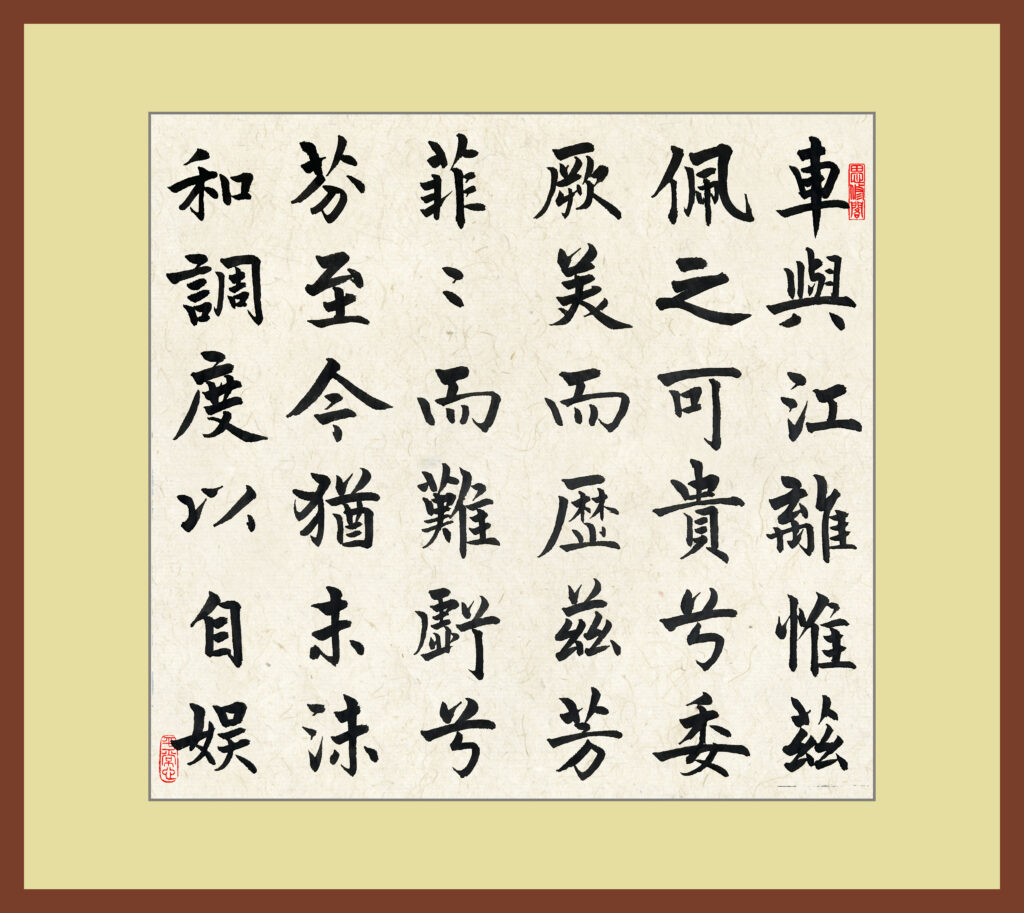 車與江離惟茲
佩之可貴兮委
厥美而歷茲芳
菲〻而難虧兮
芬至今猶未沬
和調度以自娛